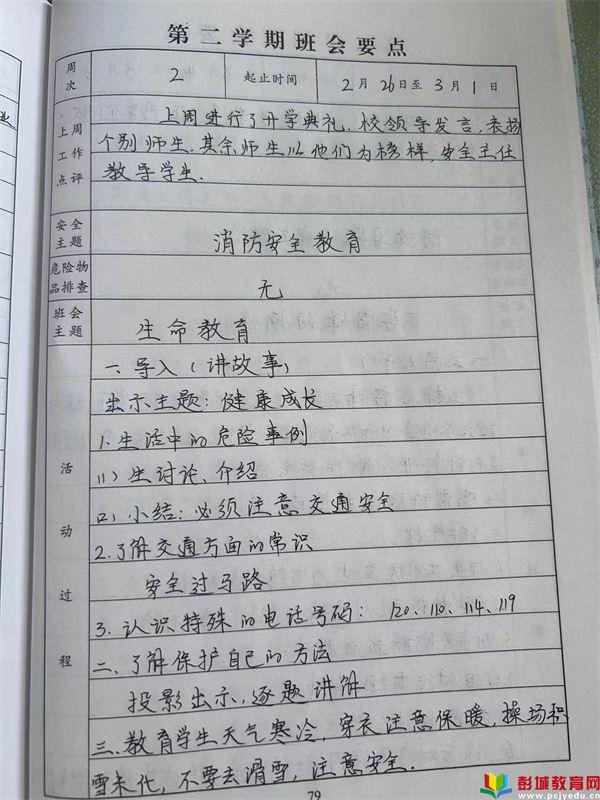 第二学期班会要点
周次 2 起止时间 2月26日至3月1日
上周工作点评
上周进行了开学典礼,校领导发言,表扬
个别师生.其余师生以他们为榜样,安全主任
教导学生.
安全主题 消防安全教育
危险物品排查 无
班会主题 生命教育
活动过程
一、导入(讲故事)
出示主题:健康成长
1.生活中的危险事例
(1)生讨论、介绍
(2)小结:必须注意交通安全
2.了解交通方面的常识
安全过马路
3.认识特殊的电话号码:120、110、114、119
二、了解保护自己的方法
投影出示,逐题讲解
三、教育学生天气寒冷,穿衣注意保暖,操场积
雪未化,不要去滑雪,注意安全.
79
彭城教育网
www.pcjyedu.cn